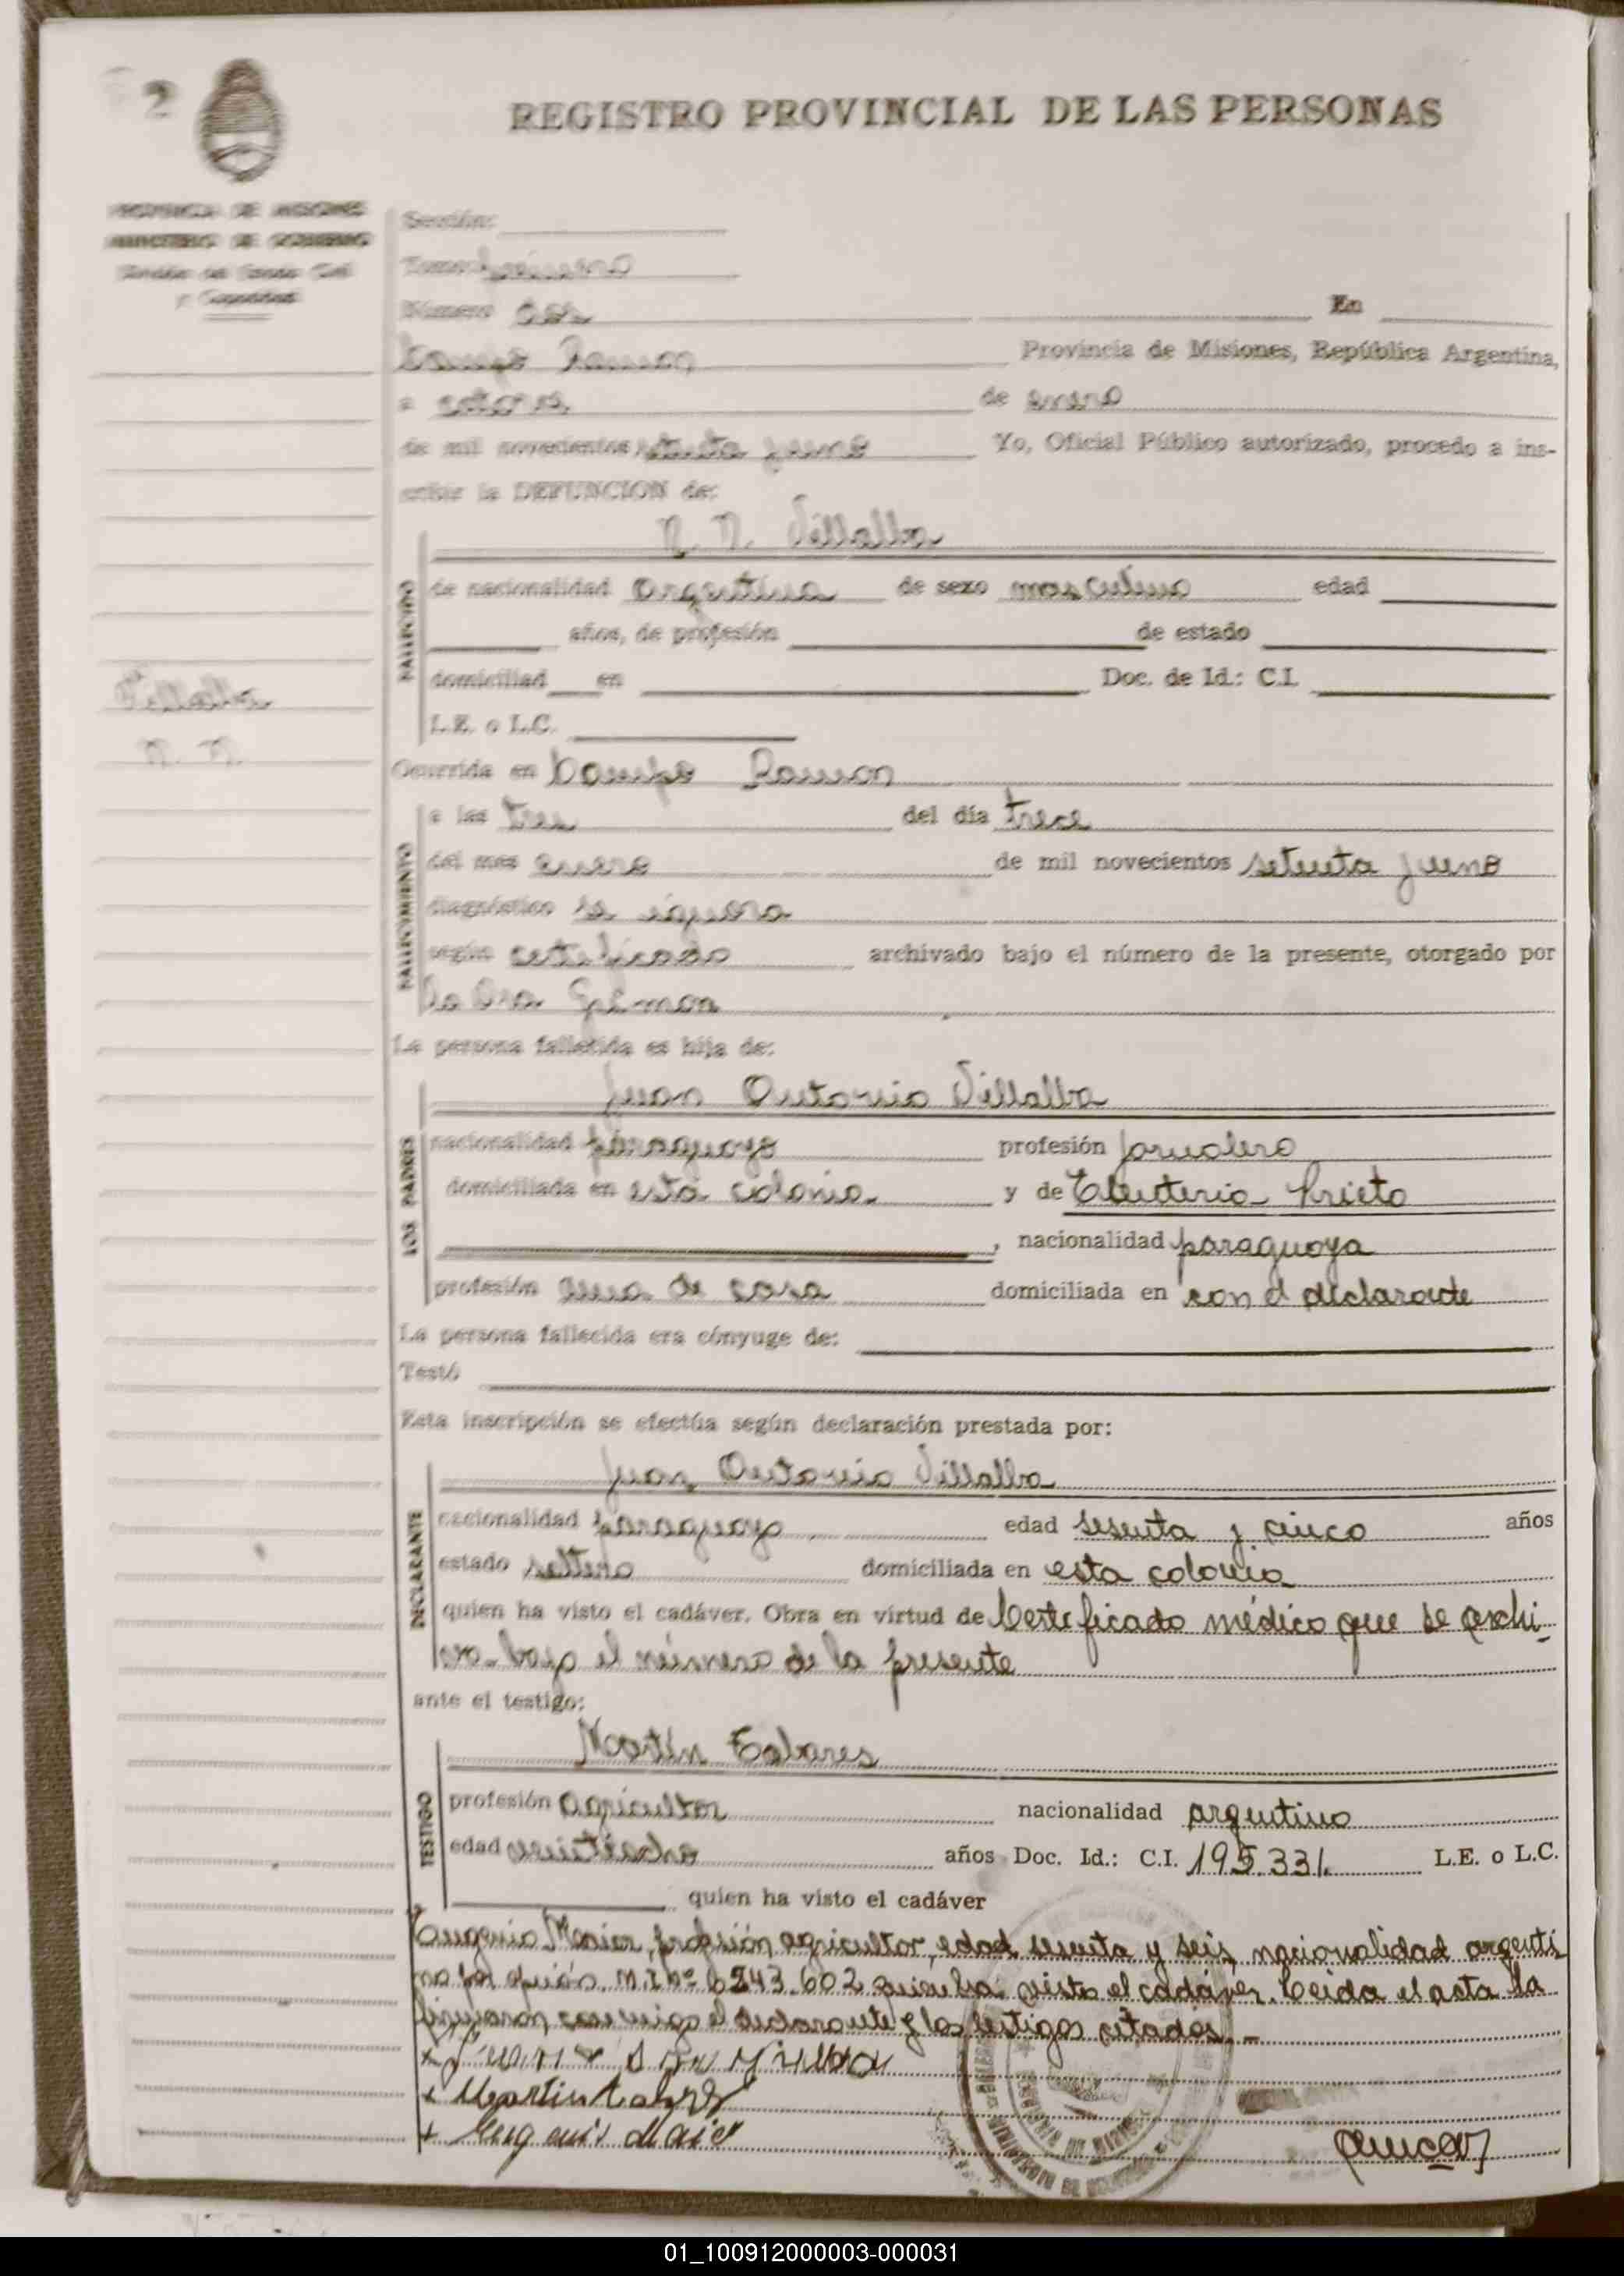 2
REGISTRO PROVINCIAL DE LAS PERSONAS
PROVINCIA DE MISIONES
MINISTERIO DE GOBIERNO
y Capacidad
Sección:
Tomo: primero
Número dos En
Campo Ramon Provincia de Misiones, República Argentina,
a catorce de enero
de mil novecientos setenta y uno Yo, Oficial Público autorizado, procedo a ins-
cribir la DEFUNCION de:
N. N. Villalba
FALLECIDO
de nacionalidad argentina de sexo masculino edad
años, de profesión de estado
domiciliad en Doc. de Id.: C.I.
L.E. o L.C.
Villalba
N. N.
Ocurrida en Campo Ramon
FALLECIMIENTO
a las tres del día trece
del mes enero de mil novecientos setenta y uno
diagnóstico se ignora
según certificado archivado bajo el número de la presente, otorgado por
la Dra
La persona fallecida es hija de:
Juan Antonio Villalba
LOS PADRES
nacionalidad paraguayo profesión jornalero
domiciliada en esta colonia y de Eleuteria Prieto
, nacionalidad paraguaya
profesión ama de casa domiciliada en con el declarante
La persona fallecida era cónyuge de:
Testó
Esta inscripción se efectúa según declaración prestada por:
Juan Antonio Villalba
DECLARANTE
nacionalidad paraguayo edad sesenta y cinco años
estado soltero domiciliada en esta colonia
quien ha visto el cadáver. Obra en virtud de Certificado médico que se archi-
va bajo el número de la presente
ante el testigo:
Martín Tabares
TESTIGO
profesión agricultor nacionalidad argentino
edad veintiocho años Doc. Id.: C.I. 195.331. L.E. o L.C.
quien ha visto el cadáver
Eugenio Maier, profesión agricultor, edad y seis, nacionalidad argenti
no M.I nº quien ha visto el cadáver. Leida el acta la
firmaron conmigo el declarante y los testigos citados. -
+ Martin
+ Eugenio Maier
01_100912000003-000031